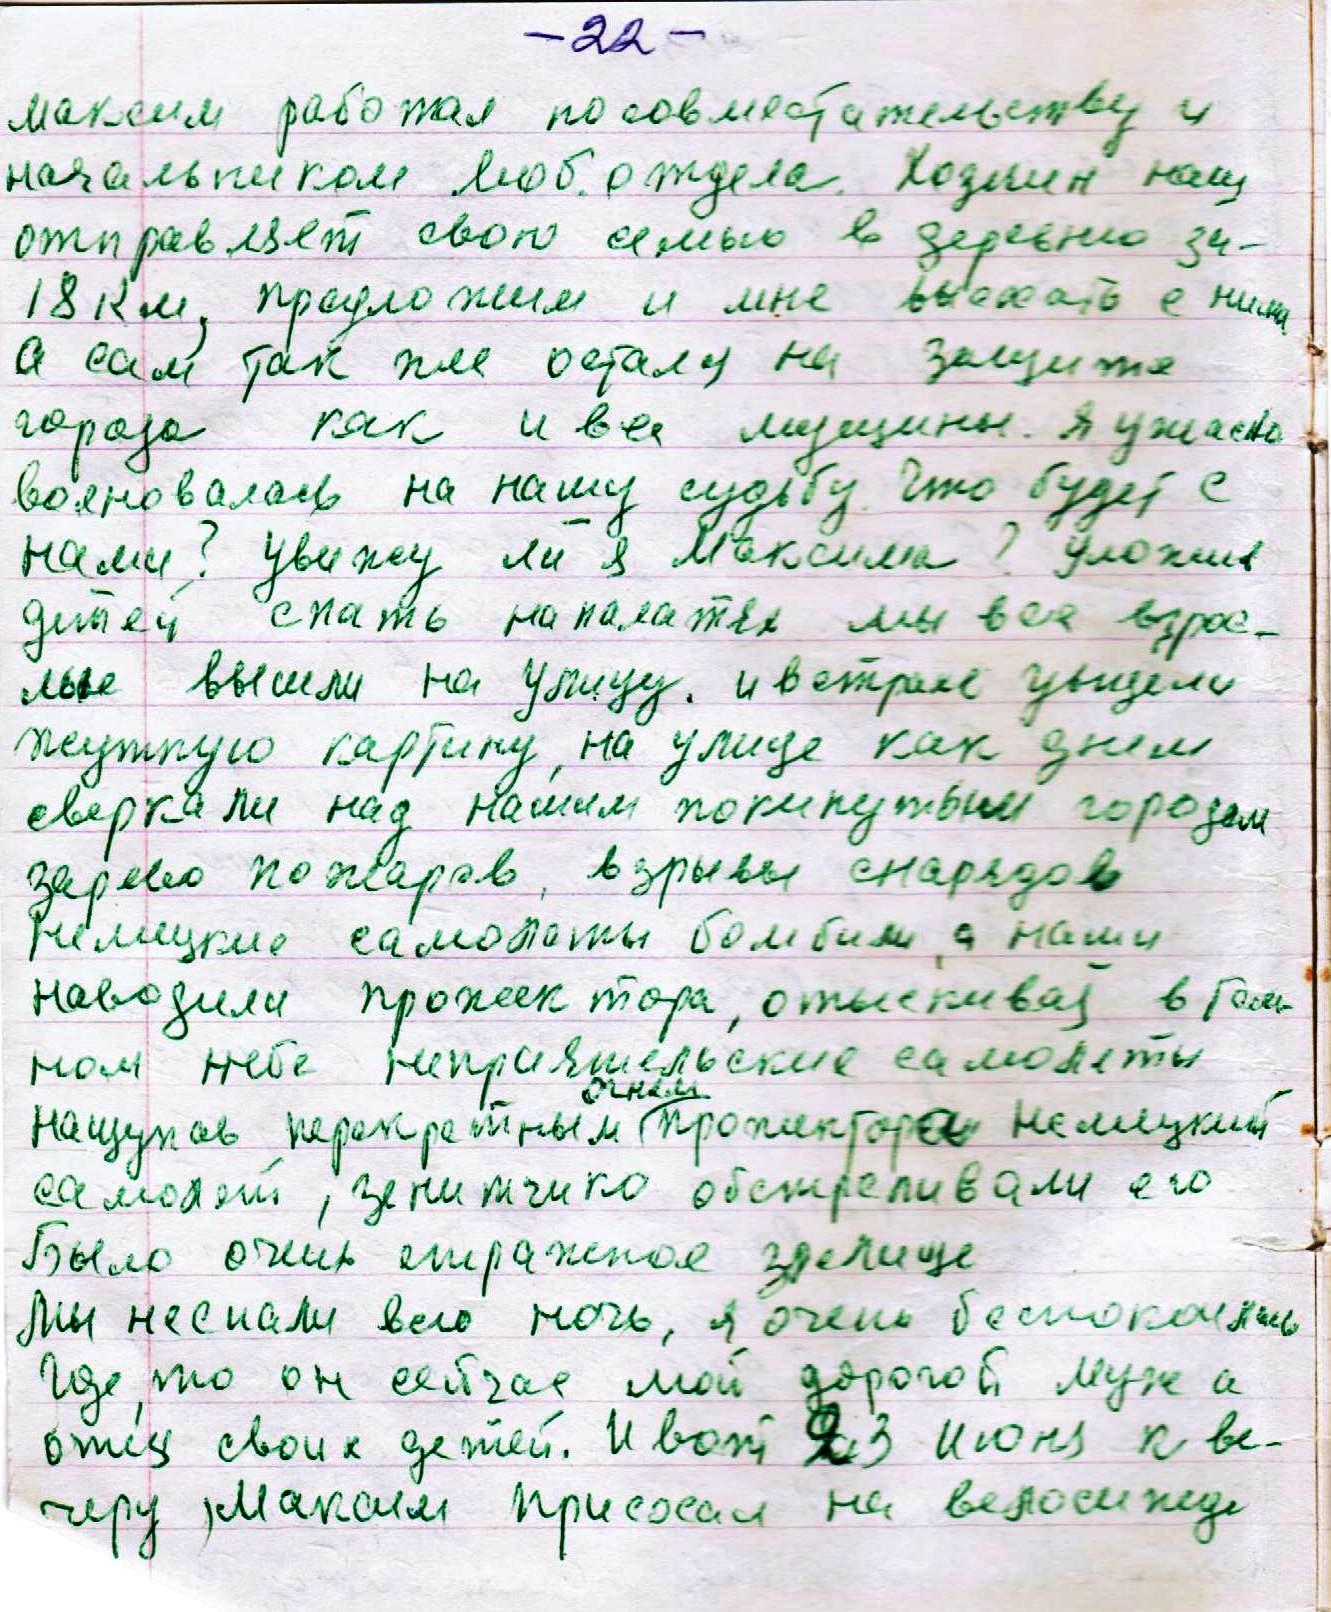 -22-
Максим работал посовместательству и
начальником Моб. отдела. Хозяин наш
отправляет свою семью в деревню за-
18 км, предложил и мне выехать с ними
а сам так же остался на защите
города как и все мущины. Я ужасно
волновалась на нашу судьбу. Что будет с
нами? Увижу ли я Максима? Уложив
детей спать на палатях мы все взрос-
лые вышли на улицу. и в страхе увидели
жуткую картину, на улице как днем
сверкали над нашим покинутым городом
зарево пожаров, взрывы снарядов
Немецкие самолаты бомбили, а нами
наводили прожектора, отыскивая в тем-
ном небе неприятельские самолеты
нащупав перекретным огнем прожектора немецкий
самолет, зенитчико обстреливали его
Было очень стражное зрелище
Мы неспали всю ночь, я очень беспокоилась
Где, то он сейчас мой дорогой муж а
отец своих детей. И вот 23 июня к ве-
черу, Максим присосал на велосипеде